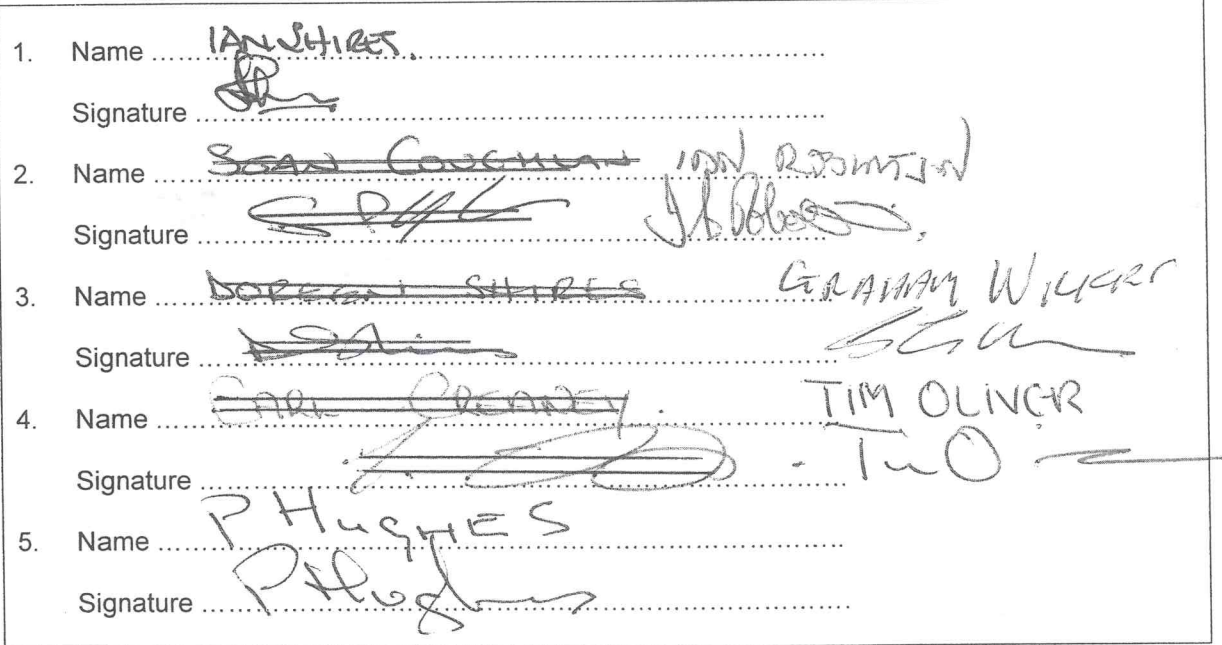 1. Name ...... IAN SHIRES.
Signature ......
2. Name ...... SEAN COUGHLAN IAN ROBINSON
Signature ......
3. Name ...... DOREEN SHIRES GRAHAM WILKES
Signature ......
4. Name ...... CARL CREANEY. TIM OLIVER
Signature ......
5. Name ...... P HUGHES
Signature ...... P Hughes